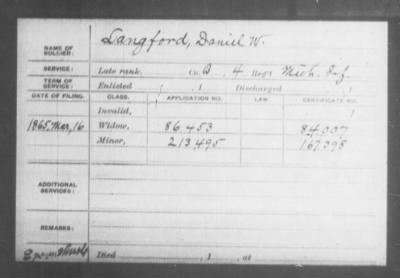 Langford, Daniel W.
NAME OF SOLDIER:
SERVICE: Late rank, Co. B, 4 Reg't Mich. Inf.
TERM OF SERVICE: Enlisted , 1 Discharged , 1
DATE OF FILING. CLASS. APPLICATION NO. LAW. CERTIFICATE NO.
Invalid,
1865, Mar, 16 Widow, 86453 84.007
Minor, 213495 167,398
ADDITIONAL SERVICES:
REMARKS:
Died , 1 , at